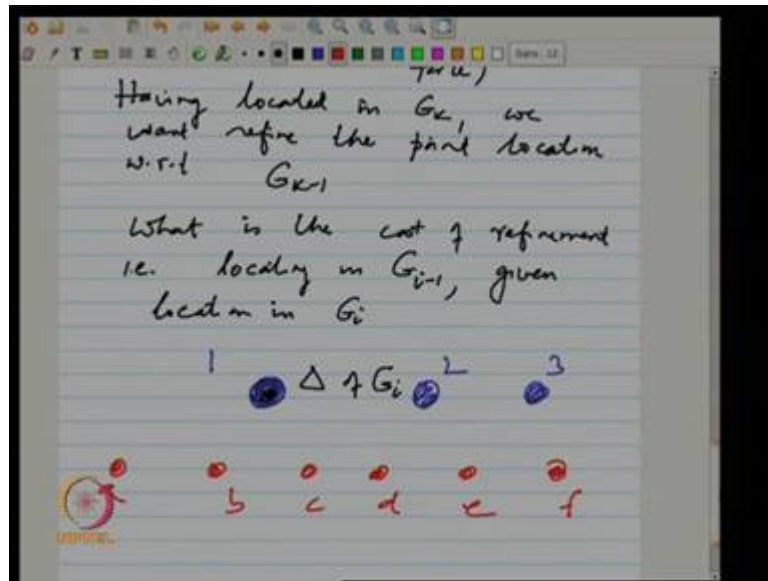 Having located in GK, we
want refine the point location
w.r.t GK-1
What is the cost of refinement
i.e. locating in Gi-1, given
location in Gi
1 Δ of Gi 2 3
b c d e f